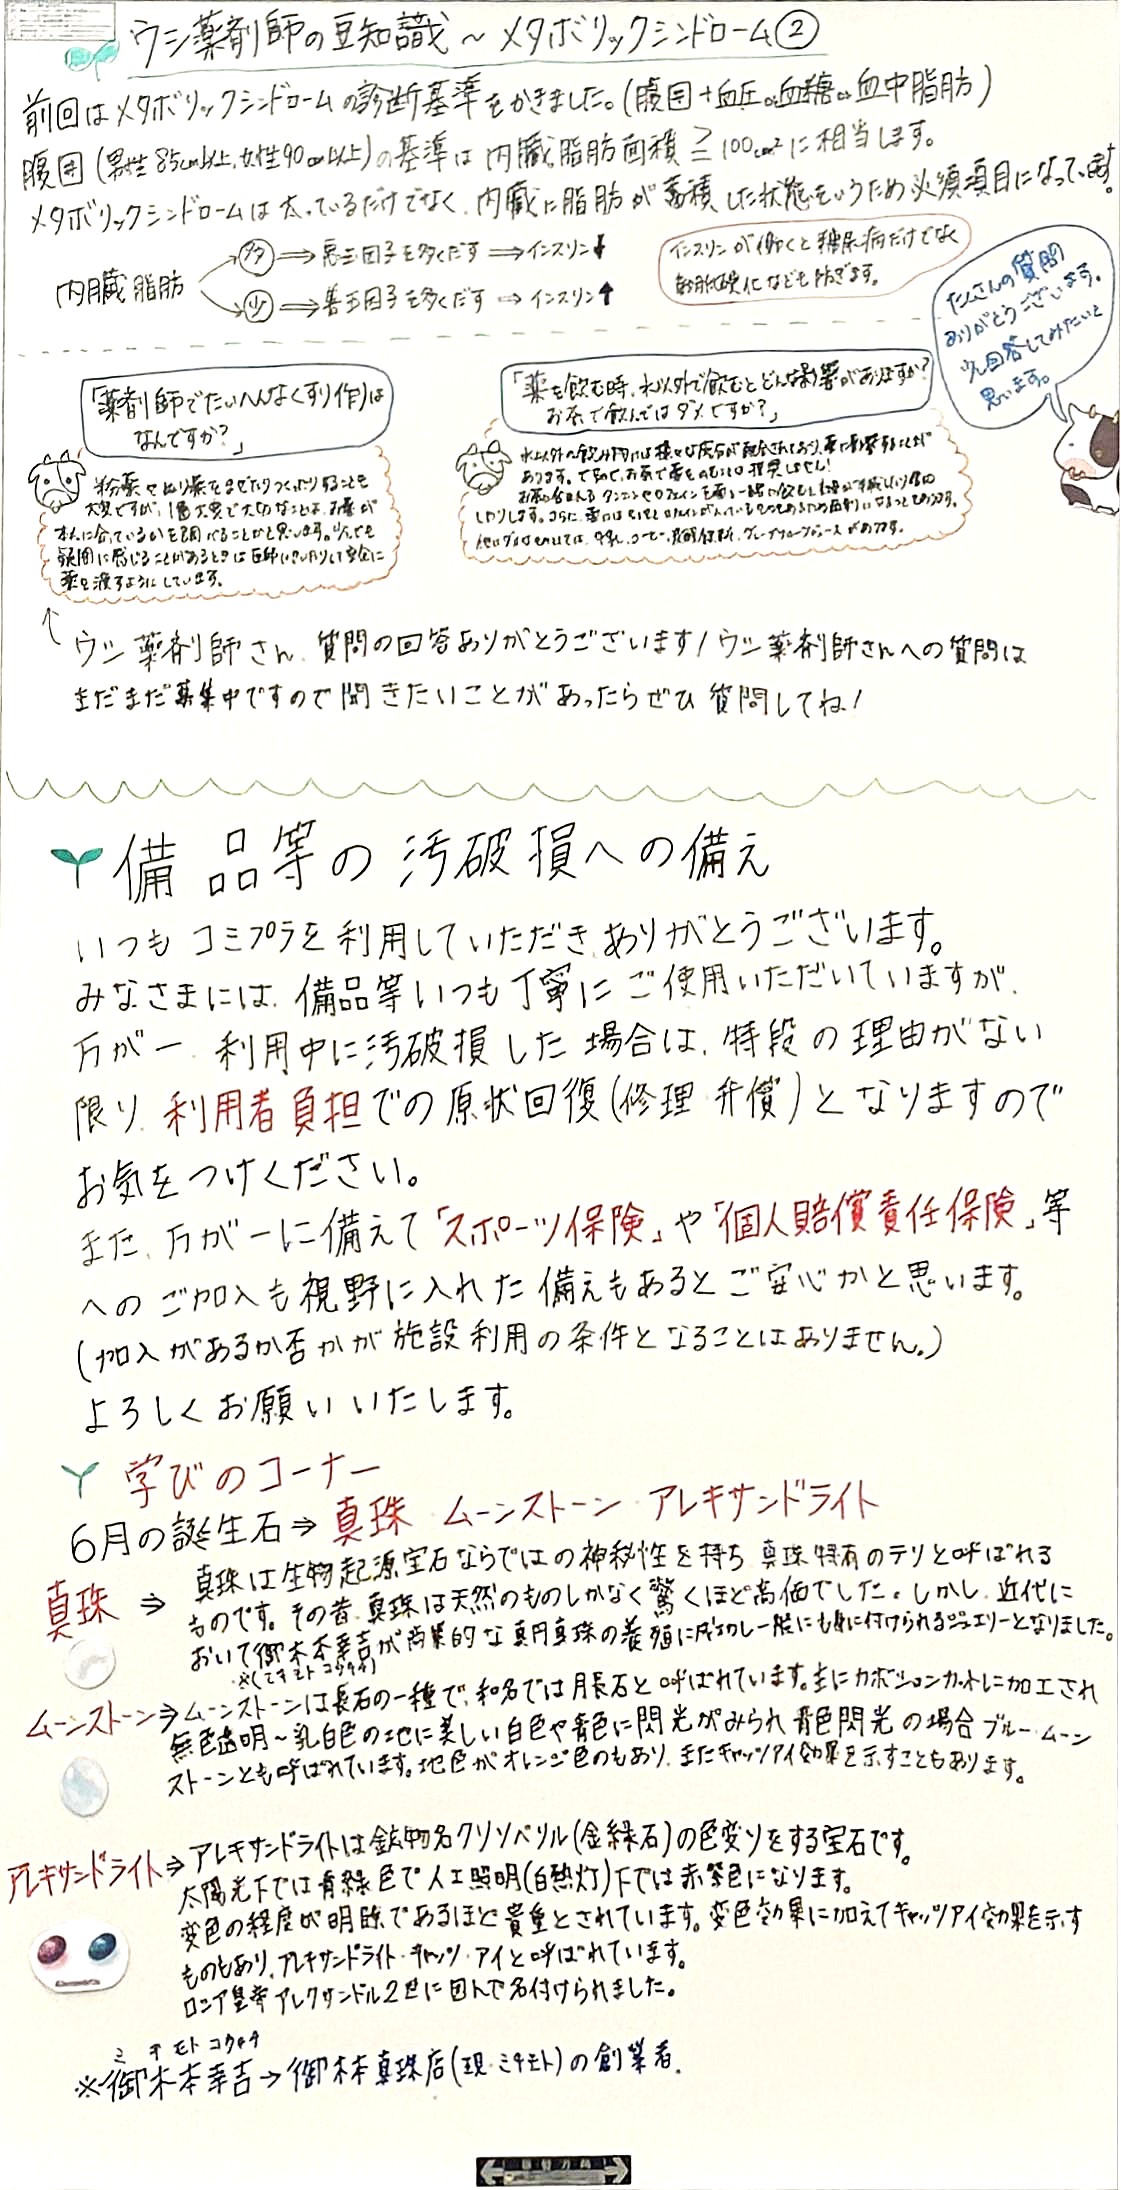 ウシ薬剤師の豆知識～メタボリックシンドローム②
前回はメタボリックシンドロームの診断基準をかきました。(腹囲+血圧or血糖or血中脂肪)
腹囲(男性85cm以上、女性90cm以上)の基準は内臓脂肪面積≧100cm²に相当します。
メタボリックシンドロームは太っているだけでなく、内臓に脂肪が蓄積した状態をいうため必須項目になっています。
内臓脂肪
多⇒悪玉因子を多くだす⇒インスリン↓
少⇒善玉因子を多くだす⇒インスリン↑
インスリンが働くと糖尿病だけでなく
動脈硬化なども防ぎます。
たくさんの質問
ありがとうございます。
少し回答してみたいと
思います。
「薬剤師でたいへんなくすり作りは
なんですか？」
粉薬やぬり薬をまぜたりつくったりすることも
大変ですが、1番大変で大切なことは、お薬が
本人に合っているかを調べることかと思います。少しでも
疑問に感じることがあるときは医師にきいたりして安全に
薬を渡すようにしています。
「薬を飲む時、水以外で飲むとどんな影響がありますか？
お茶で飲んではダメですか？」
水以外の飲み物には様々な成分が配合されており、薬に影響することが
あります。なので、お茶で薬をのむことは推奨しません！
↑ウシ薬剤師さん、質問の回答ありがとうございます！ウシ薬剤師さんへの質問は
まだまだ募集中ですので聞きたいことがあったらぜひ質問してね！
備品等の汚破損への備え
いつもコミプラを利用していただき、ありがとうございます。
みなさまには、備品等いつも丁寧にご使用いただいていますが、
万が一、利用中に汚破損した場合は、特段の理由がない
限り、利用者負担での原状回復(修理・弁償)となりますので
お気をつけください。
また、万が一に備えて「スポーツ保険」や「個人賠償責任保険」等
へのご加入も視野に入れた備えもあるとご安心かと思います。
(加入があるか否かが施設利用の条件となることはありません。)
よろしくお願いいたします。
学びのコーナー
6月の誕生石⇒真珠 ムーンストーン・アレキサンドライト
真珠⇒真珠は生物起源宝石ならではの神秘性を持ち真珠特有のテリと呼ばれる
ものです。その昔、真珠は天然のものしかなく驚くほど高価でした。しかし、近代に
おいて御木本幸吉が商業的な真円真珠の養殖に成功し一般にも身に付けられるジュエリーとなりました。
※(ミキモトコウキチ)
ムーンストーン⇒ムーンストーンは長石の一種で、和名では月長石と呼ばれています。主にカボションカットに加工され
無色透明～乳白色の地に美しい白色や青色に閃光がみられ青色閃光の場合ブルー・ムーン
ストーンとも呼ばれています。地色がオレンジ色のもあり、またキャッツアイ効果を示すこともあります。
アレキサンドライト⇒アレキサンドライトは鉱物名クリソベリル(金緑石)の色変りをする宝石です。
太陽光下では青緑色で人工照明(白熱灯)下では赤紫色になります。
変色の程度が明瞭であるほど貴重とされています。変色効果に加えてキャッツアイ効果を示す
ものもあり、アレキサンドライト・キャッツ・アイと呼ばれています。
ロシア皇帝アレクサンドル2世に因んで名付けられました。
ミキモトコウキチ
※御木本幸吉→御木本真珠店(現・ミキモト)の創業者。